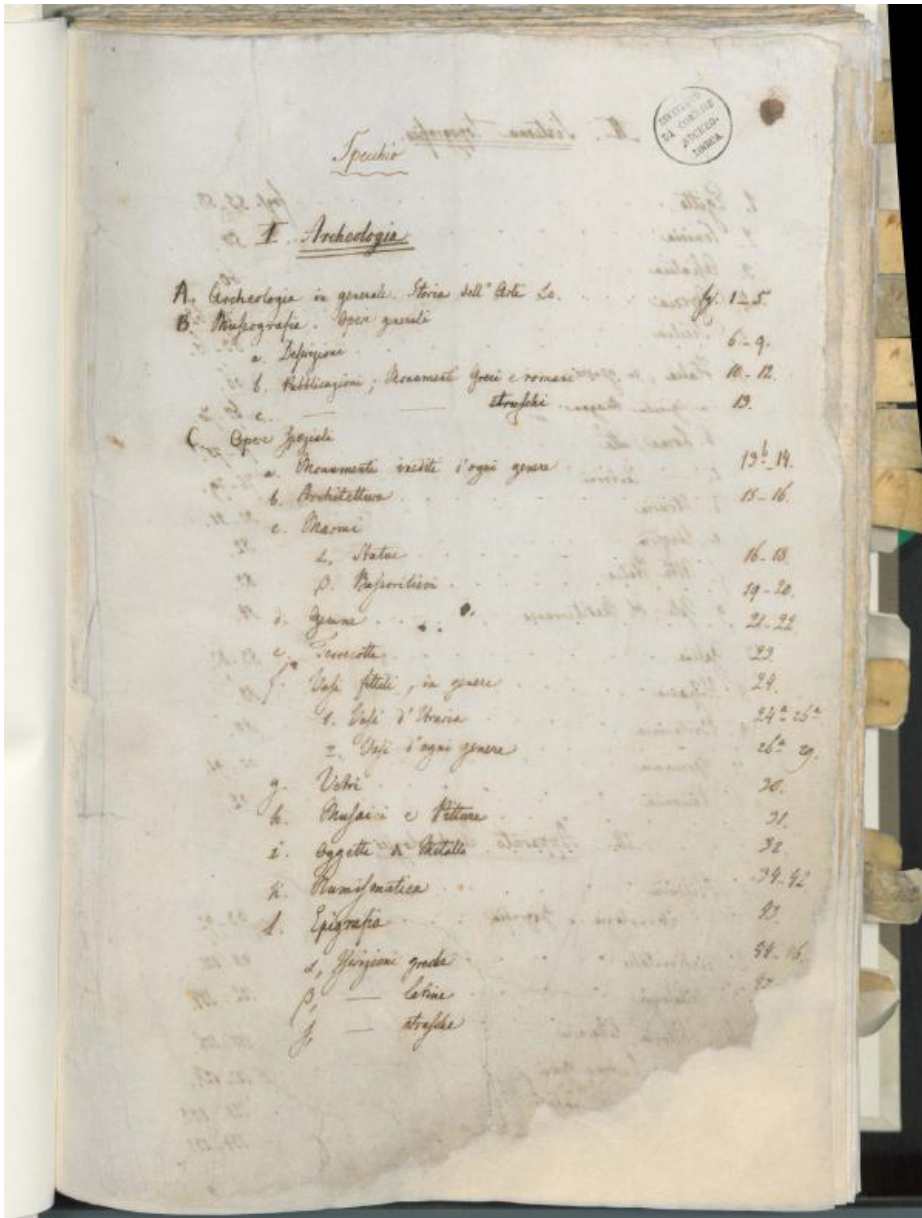 ISTITUTO
DI CORRISP.
ARCHEO-
LOGICA
Specchio
I. Archeologia
A. Archeologia in generale. Storia dell'Arte &c. fg. 1-5
B. Museografia. Opere generali
a. Descrizione 6-9.
b. Pubblicazioni; Monumenti Greci e romani 10-12.
c. — — etruschi 13.
C. Opere speziali
a. Monumenti inediti d'ogni genere 13b-14.
b. Architettura 15-16.
c. Marmi
α, Statue 16-18.
β. Bassorilievi 19-20.
d. Gemme 21-22
e. Terrecotte 23
f. Vasi fittili, in genere 24.
1. Vasi d'Etruria 24a-26a
2. Vasi d'ogni genere 26a 29.
g. Vetri 30.
h. Musaici e Pitture 31.
i. Oggetti di Metallo 32.
k. Numismatica 34-42
l. Epigrafia 43
α, Iscrizioni greche
β, — latine
γ, — etrusche